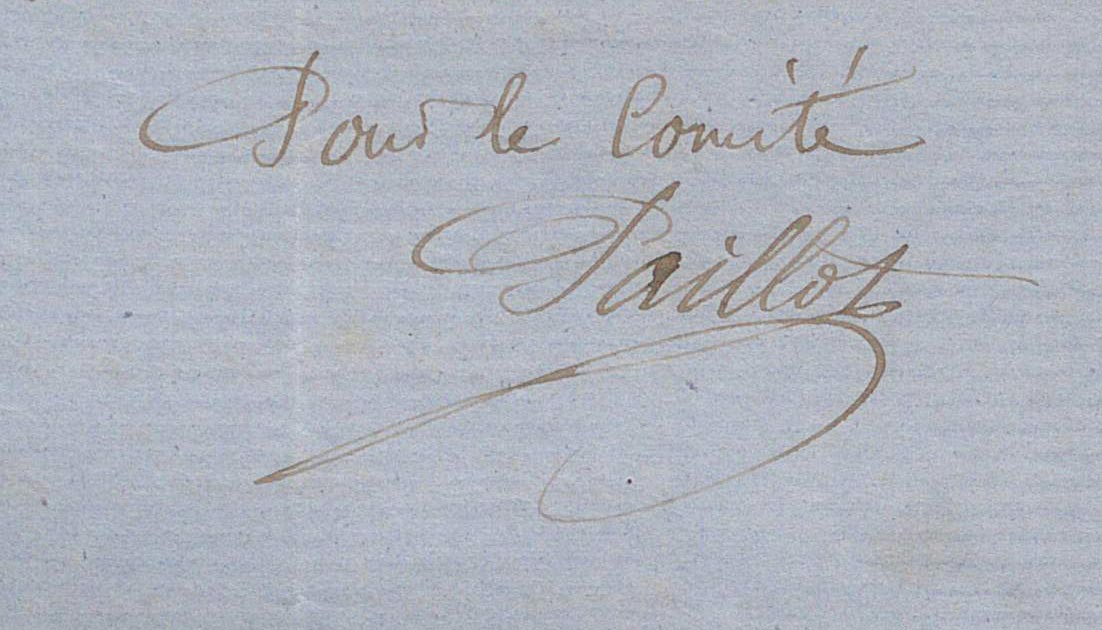 Pour le Comité
Paillot